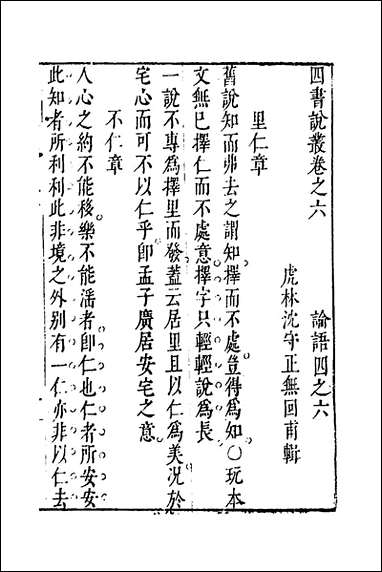 四書說叢卷之六　　論語四之六
虎林沈守正無回甫輯
里仁章
舊說知而弗去之謂知擇而不處豈得爲知○玩本
文無已擇仁而不處意擇字只輕輕說爲長
一說不專爲擇里而發蓋云居里且以仁爲美況於
宅心而可不以仁乎卽孟子廣居安宅之意
不仁章
人心之約不能移樂不能淫者卽仁也仁者所安安
此知者所利利此非境之外別有一仁亦非以仁去